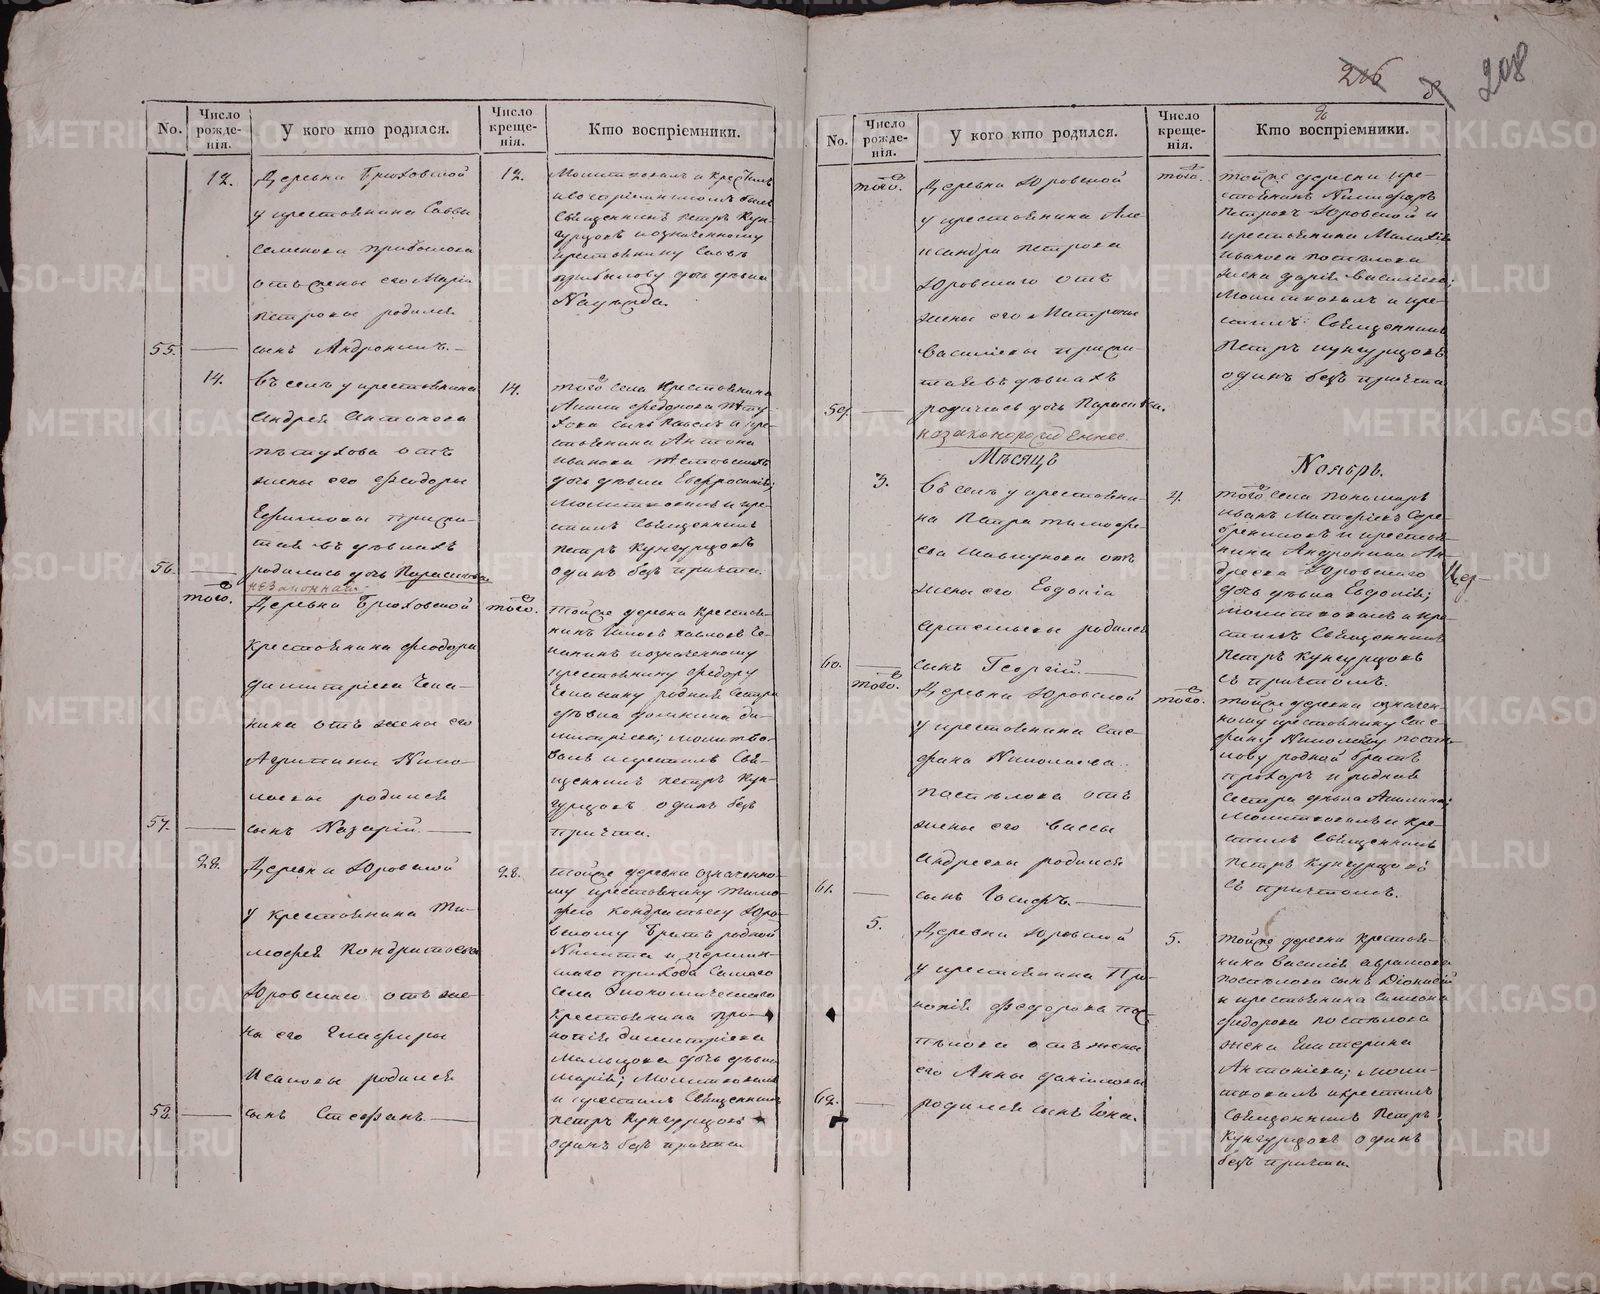 206
208
No.
Число рожде-нія.
У кого кто родился.
Число креще-нія.
Кто воспріемники.
12.
Деревни Брюховской
у крестьянина Саввы
Семенова Прибылова
отъ жены его Маріи
Петровой родился
55.
сынъ Андроникъ.
12.
Молитвовалъ и крестилъ
и воспріемникомъ былъ
Священникъ Петръ Кун-
гурцовъ и означенному
крестьянину Саввѣ
Прибылову дочь дѣвица
14.
Въ селѣ у крестьянина
Андрея Антонова
Пѣтухова отъ
жены его Ѳеодоры
Ефимовой прижи-
тая въ дѣвкахъ
56.
родилась дочь Параскева
незаконная.
14.
того села крестьянина
сынъ Павелъ и кре-
стьянина Антона
Иванова
дочь дѣвица Евфросинія;
молитвовалъ и кре-
стилъ Священникъ
Петръ Кунгурцовъ
одинъ безъ причта.
того.
Деревни Брюховской
крестьянина Ѳеодора
Димитріева Чепа-
кина отъ жены его
Агрипины Нико-
лаевой родился
57.
сынъ Назарій.
того.
тойже деревни крестья-
нинъ Павловъ Че-
пакинъ и означенному
крестьянину Ѳедору
Чепакину родная сестра
дѣвица Домникія Ди-
митріева; молитво-
валъ и крестилъ Свя-
щенникъ Петръ Кун-
гурцовъ одинъ безъ
причта.
28.
Деревни Юровской
у крестьянина Ти-
мофея Кондратьева
Юровскаго отъ же-
ны его Гликеріи
Исаковой родился
58.
сынъ Стефанъ.
28.
тойже деревни означенно-
му крестьянину Тимо-
фею Кондратьеву Юро-
вскому братъ родной
Никита и
прихода Самаго
села Экономическаго
крестьянина Про-
копія Димитріева
Мальцова дочь дѣвица
Марія; молитвовалъ
и крестилъ Священникъ
Петръ Кунгурцовъ
одинъ безъ причта.
No.
Число рожде-нія.
У кого кто родился.
Число креще-нія.
Кто воспріемники.
того.
Деревни Юровской
у крестьянина Але-
ксандра Петрова
Юровскаго отъ
жены его Матроны
Васильевой прижи-
тая въ дѣвкахъ
59.
родилась дочь Параскева.
незаконнорожденнее.
того.
тойже деревни кре-
стьянинъ Никифоръ
Петровъ Юровской и
крестьянина Малахія
Иванова Постылова
жена Дарія Васильева;
Молитвовалъ и кре-
стилъ Священникъ
Петръ Кунгурцовъ
одинъ безъ причта
Мѣсяцъ
Ноябрь.
3.
Въ селѣ у крестьяни-
на Петра Тимофе-
ева Шавкунова отъ
жены его Евдокіи
Артемьевой родился
60.
сынъ Георгій.
4.
того села пономарь
Иванъ Матфіевъ Сере-
бренниковъ и крестья-
нина Андроника Ан-
дреева Юровскаго
дочь дѣвица Евдокія;
молитвовалъ и кре-
стилъ Священникъ
Петръ Кунгурцовъ
съ причтомъ.
того.
Деревни Юровской
у крестьянина Сте-
фана Николаева
Постылова отъ
жены его Вассы
Андреевой родился
61.
сынъ Іосифъ.
того.
тойже деревни означен-
ному крестьянину Сте-
фану Николаеву Посты-
лову родной братъ
Прохоръ и родная
сестра дѣвица Акилина;
Молитвовалъ и кре-
стилъ Священникъ
Петръ Кунгурцовъ
съ причтомъ.
5.
Деревни Юровской
у крестьянина Про-
копія Ѳедорова Пос-
тылова отъ жены
его Анны Даніиловой
62.
родился сынъ Іона.
5.
тойже деревни крестья-
нина Василія Аврамова
Постылова сынъ Діонисій
и крестьянина Симеона
Ѳедорова Постылова
жена Екатерина
Антоніева; моли-
твовалъ и крестилъ
Священникъ Петръ
Кунгурцовъ одинъ
безъ причта.